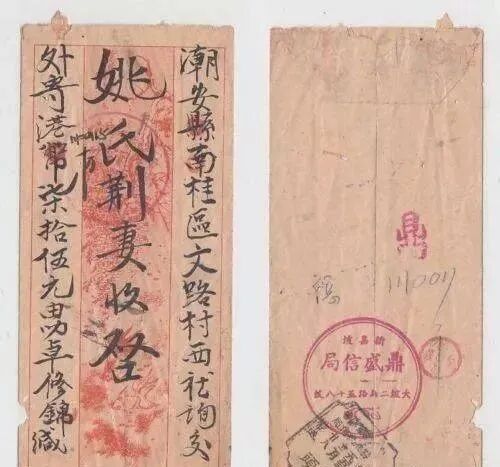 潮安縣南桂區文路村西社詢交
姚氏荆妻收啓
外寄港幣柒拾伍元由叻卓修錦緘
鼎
新嘉坡
鼎盛信局
大坡二馬路五十八號